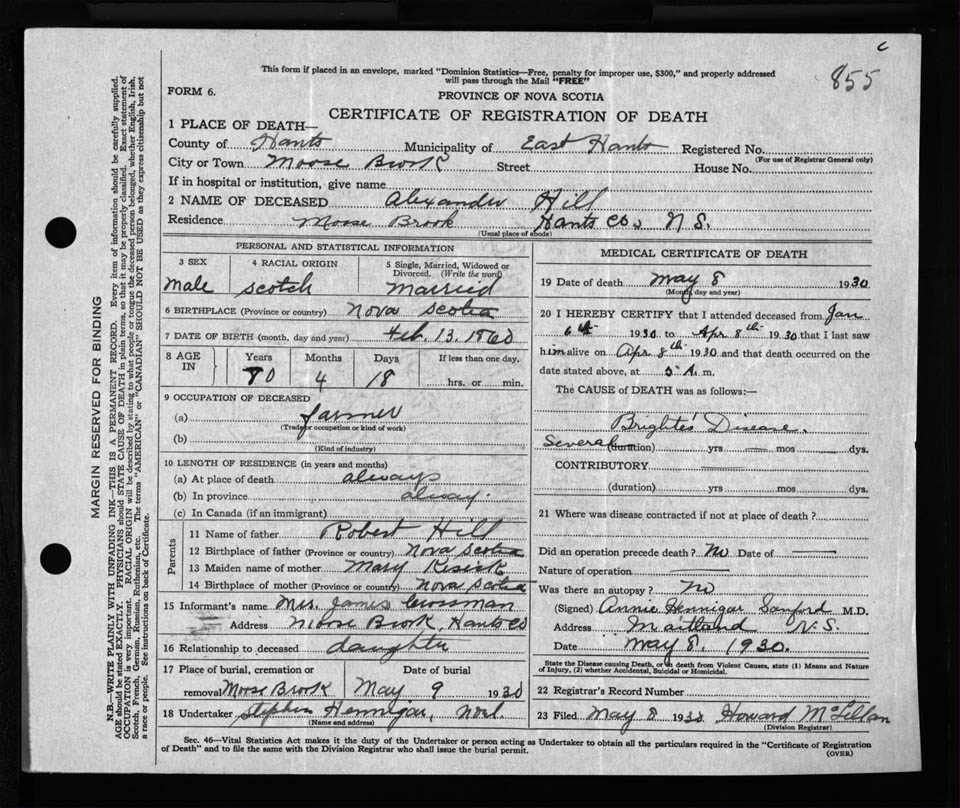 c
855
This form if placed in an envelope, marked "Dominion Statistics—Free, penalty for improper use, $300," and properly addressed
will pass through the Mail "FREE"
FORM 6.
PROVINCE OF NOVA SCOTIA
CERTIFICATE OF REGISTRATION OF DEATH
1 PLACE OF DEATH—
County of Hants Municipality of East Hants Registered No.
(For use of Registrar General only)
City or Town Moose Brook Street House No.
If in hospital or institution, give name
2 NAME OF DECEASED Alexander Hill
Residence Moose Brook Hants Co., N.S.
(Usual place of abode)
PERSONAL AND STATISTICAL INFORMATION
3 SEX 4 RACIAL ORIGIN 5 Single, Married, Widowed or
Divorced. (Write the word)
Male Scotch Married
6 BIRTHPLACE (Province or country) Nova Scotia
7 DATE OF BIRTH (month, day and year) Feb. 13. 1860
8 AGE IN Years Months Days If less than one day,
70 4 18 hrs. or min.
9 OCCUPATION OF DECEASED
(a) farmer
(Trade or occupation or kind of work)
(b)
(Kind of industry)
10 LENGTH OF RESIDENCE (in years and months)
(a) At place of death always
(b) In province alway.
(c) In Canada (if an immigrant)
Parents
11 Name of father Robert Hill
12 Birthplace of father (Province or country) Nova Scotia
13 Maiden name of mother Mary
14 Birthplace of mother (Province or country) Nova Scotia
15 Informant's name Mrs. James Crossman
Address Moose Brook, Hants Co
16 Relationship to deceased daughter
17 Place of burial, cremation or Date of burial
removal Moose Brook May 9 1930
18 Undertaker Stephen Hennigar, Noel
(Name and address)
MEDICAL CERTIFICATE OF DEATH
19 Date of death May 8 1930
(Month, day and year)
20 I HEREBY CERTIFY that I attended deceased from Jan
6th 1930 to Apr 8th 1930 that I last saw
him alive on Apr 8th 1930 and that death occurred on the
date stated above, at 5 A. m.
The CAUSE of DEATH was as follows:—
Bright's Disease.
Several (duration) yrs mos dys.
CONTRIBUTORY
(duration) yrs mos dys.
21 Where was disease contracted if not at place of death?
Did an operation precede death? No Date of
Nature of operation
Was there an autopsy? No
(Signed) Annie Hennigar Sanford M.D.
Address Maitland N.S.
Date May 8. 1930.
State the Disease causing Death, or in death from Violent Causes, state (1) Means and Nature
of Injury, (2) whether Accidental, Suicidal or Homicidal.
22 Registrar's Record Number
23 Filed May 8 1930 Howard McLellan
(Division Registrar)
Sec. 46—Vital Statistics Act makes it the duty of the Undertaker or person acting as Undertaker to obtain all the particulars required in the "Certificate of Registration
of Death" and to file the same with the Division Registrar who shall issue the burial permit.
(OVER)
MARGIN RESERVED FOR BINDING
N.B.—WRITE PLAINLY WITH UNFADING INK—THIS IS A PERMANENT RECORD. Every item of information should be carefully supplied.
AGE should be stated EXACTLY. PHYSICIANS should STATE CAUSE OF DEATH in plain terms, so that it may be properly classified. Exact statement of
OCCUPATION is very important. RACIAL ORIGIN will be described by stating to what people or tongue the deceased person belonged, whether English, Irish,
Scotch, French, German, Russian, Ruthenian, etc. The terms "AMERICAN" or "CANADIAN" SHOULD NOT BE USED as they express citizenship but not
a race or people. See instructions on back of Certificate.